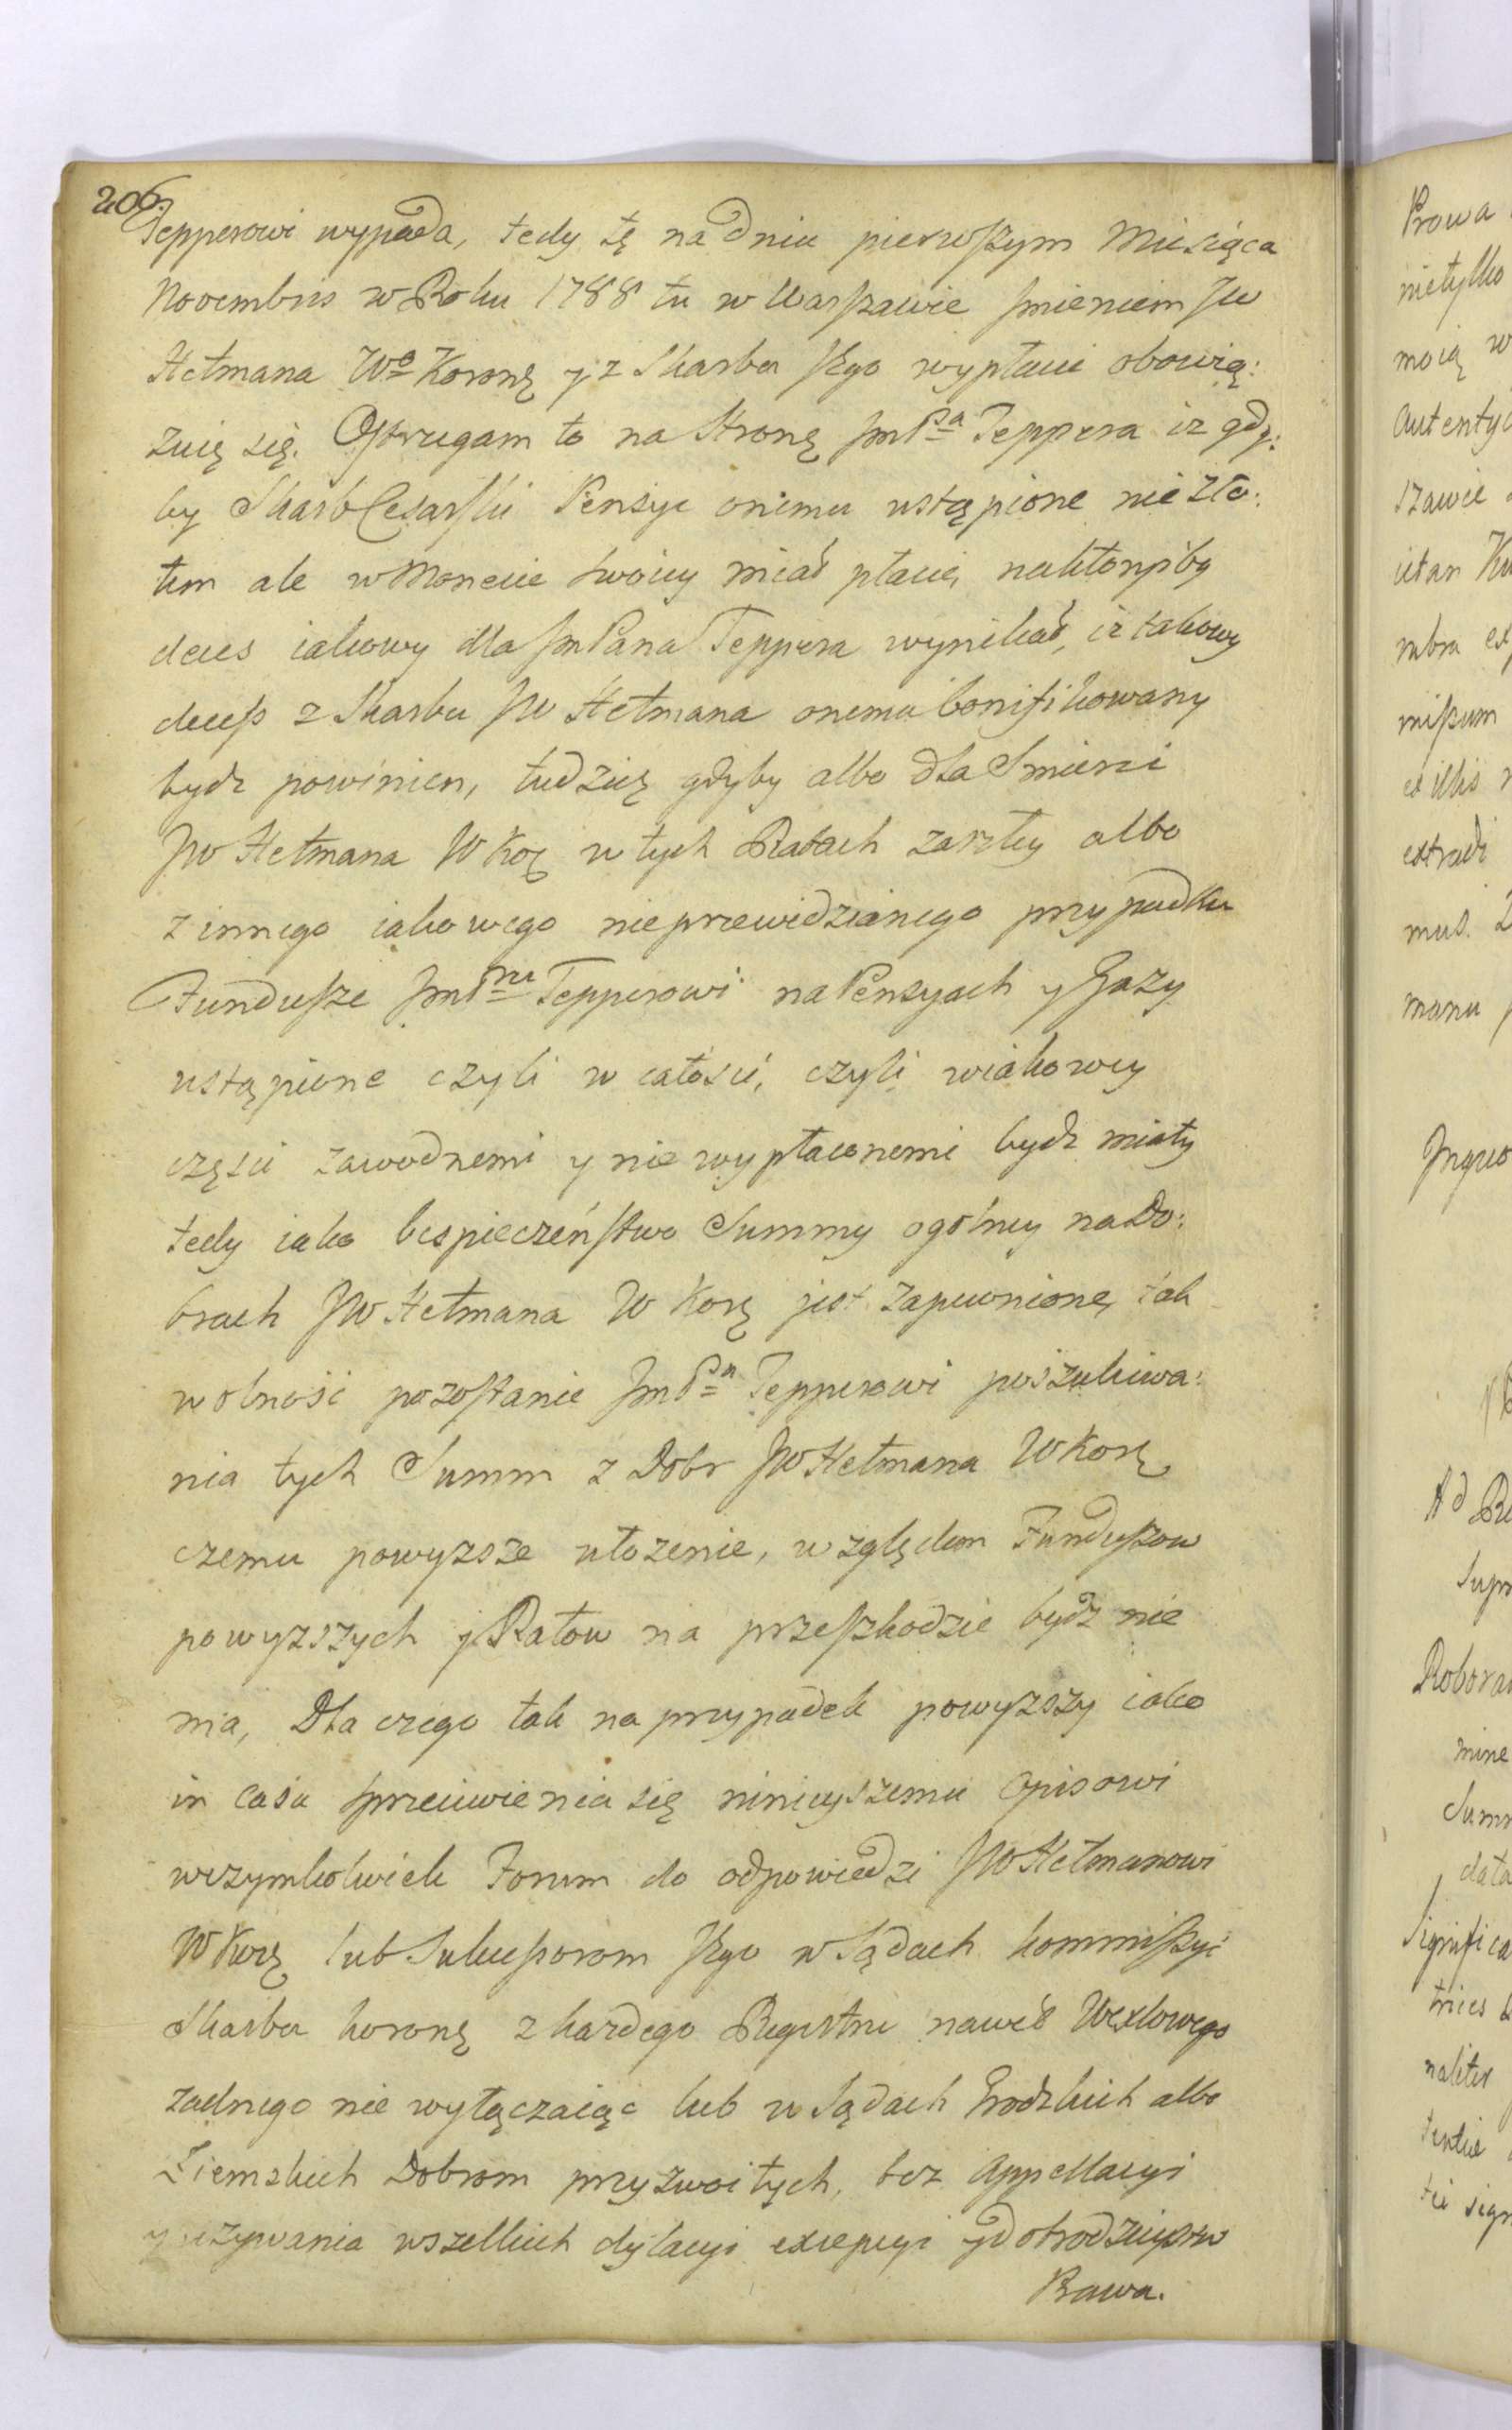 206.
Tepperowi wypada, tedy tę na dniu pierwszym Miesiąca
Novembris w Roku 1788 tu w Warszawie Jmieniem JW
Hetmana Wo Koronę y z Skarbu Jego wypłacić obowią:
zuię się. Ostrzegam to na Stronę JmPa Teppera iz gdy:
by Skarb Cesarski Pensye onemu ustąpione nie zło:
tem ale w Monecie swoiey miał płacić, na któryiby
deces iakowy dla JmPana Teppera wynikał, iz takowy
decess z Skarbu JW Hetmana onemu bonifikowany
bydz powinien, tudzież gdyby albo dla Smierci
JW Hetmana WKoę w tych Ratach zaszłey albo
z innego iakowego nieprzewidzianego przypadku
Fundusze JmPnu Tepperowi na Pensyach y Gazy
ustąpione czyli w całości, czyli w iakowey
części zawodnemi y nie wypłaconemi bydz miały
tedy iako bespieczeństwo Summy ogólney na Do:
brach JW Hetmana W Korę jest zapewnione, tak
wolność pozostanie JmPn Tepperowi poszukiwa:
nia tych Summ z Dobr JW Hetmana W Korę
czemu powyzsze ułozenie, względem Funduszow
powyzszych y Ratow na przeszkodzie bydz nie
ma, Dla czego tak na przypadek powyzszy iako
in casu sprzeciwienia się ninieyszemu Opisowi
wczymkolwiek Forum do odpowiedzi JW Hetmanowi
W Korę lub Sukcessorom Jego w Sądach Kommissyi
Skarbu Koronę z kazdego Regestru nawet Wexlowego
zadnego nie wyłączaiąc lub w Sądach Grodzkich albo
Ziemskich Dobrom przyzwoitych, bez Appellacyi
y uzywania wszelkich dylacyi excepcyi y dobrodzieystw
Prawa.
Prawa
nietylko
moią w
Autentyc
szawie
mbra ex
missum
ex illis
extradi
mus.
manu
Ad Re
Supr
Roboran
mine
Summ
data
Significa
naliter